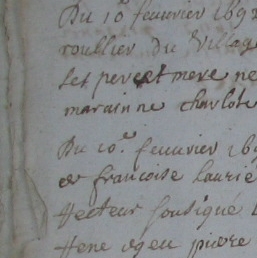 Du 10e feuurier 1692
roullier Du Village
ses pere et mere ne
marainne charlote
Du 10e feuurier 169
de francoise laurie
Hecteur sousigne
Hene ageu pierre